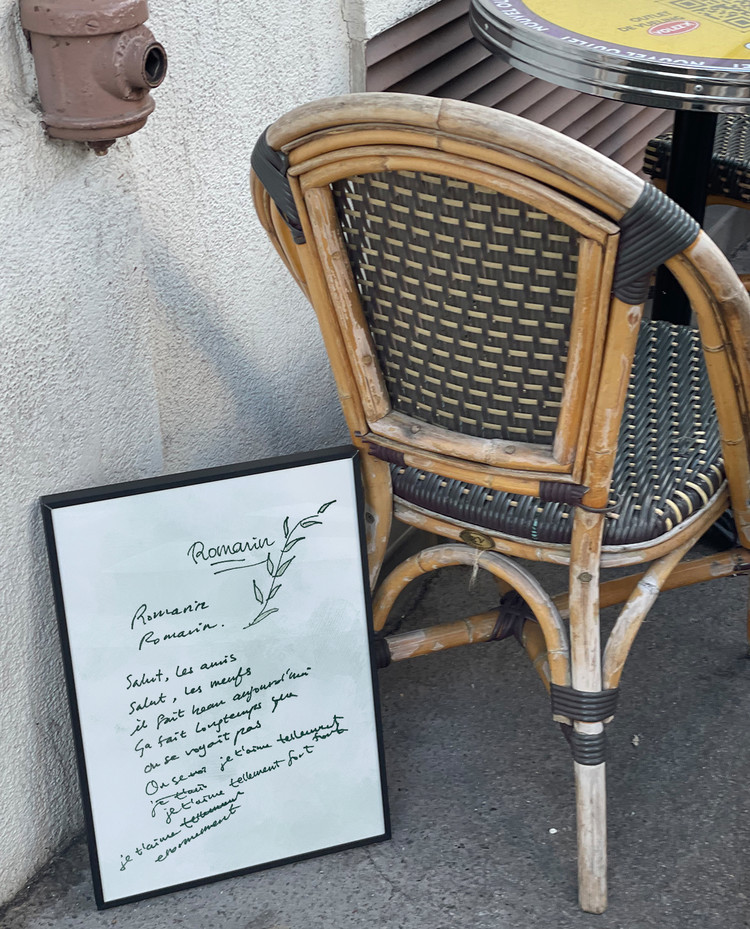 NOUVEL OUTIL!
NOUVEL OU
YOUZIX
Romarin
Romarin
Romarin.
Salut, les amis
Salut, les meufs
il fait beau aujourd'hui
Ça fait longtemps que
on se voyait pas
On se voi je t'aime tellement
je t'aime tellement fort
je t'aime tellement
enormement